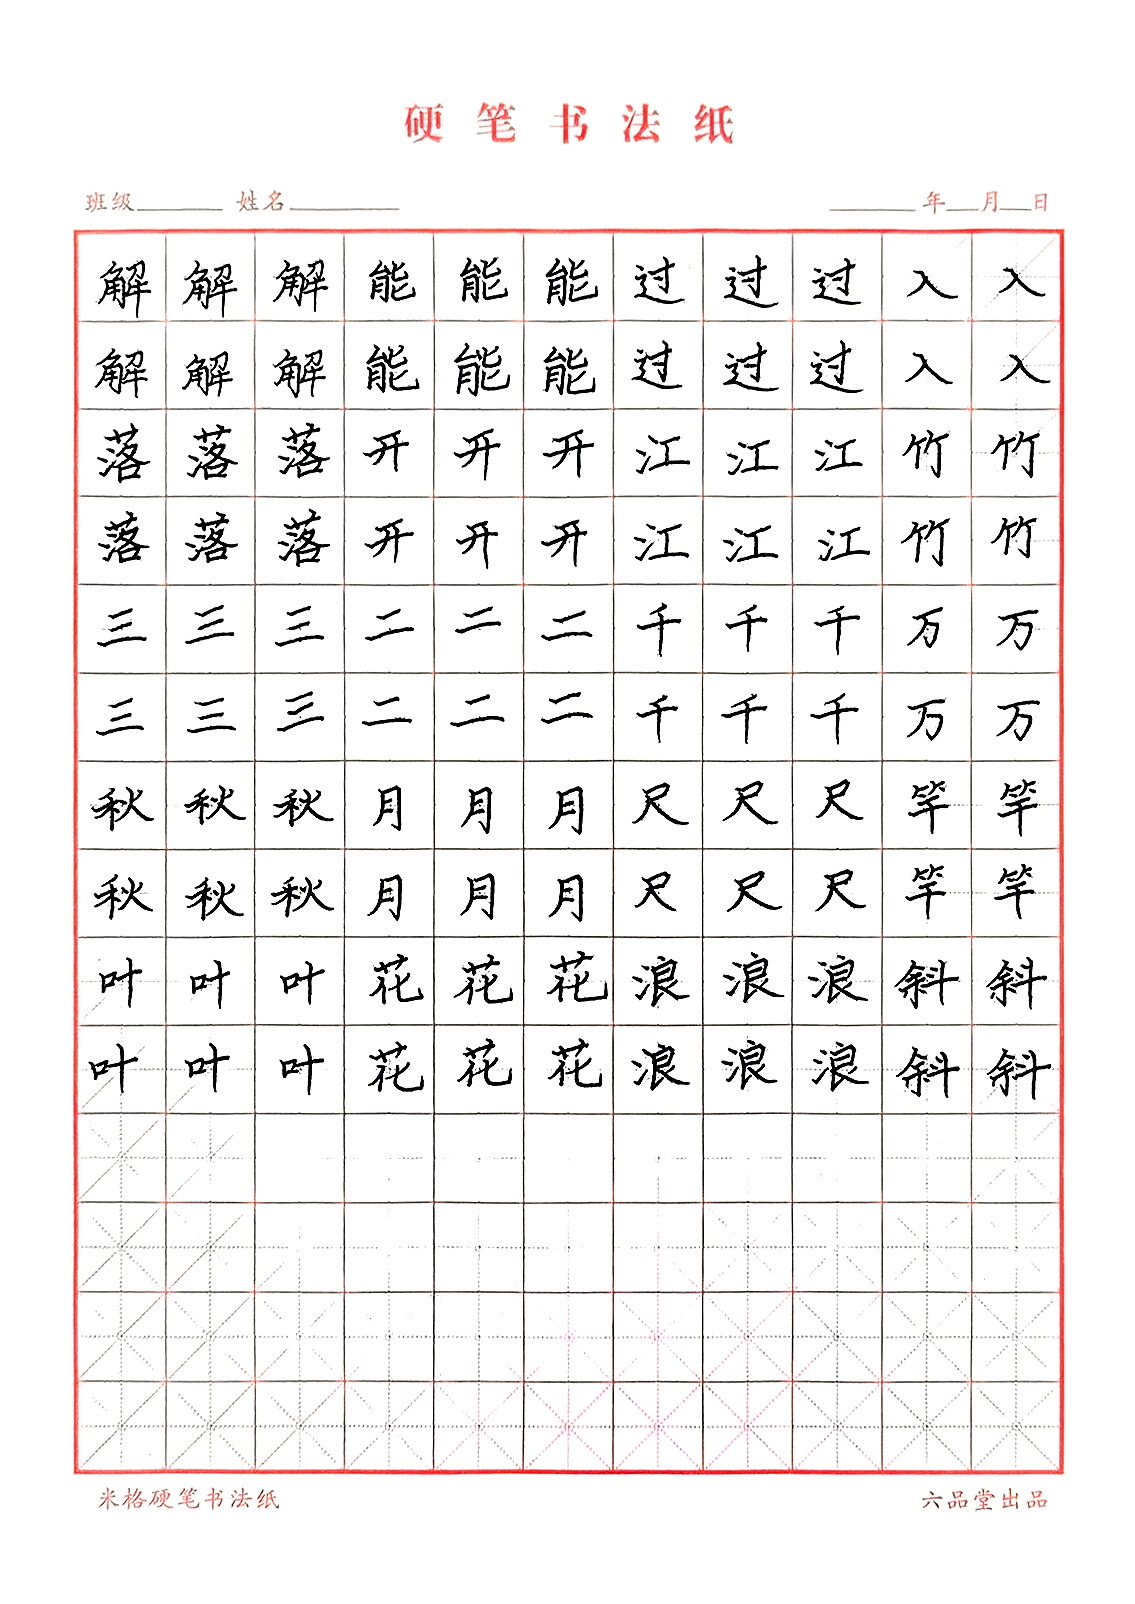 硬笔书法纸
班级______ 姓名________ ______年__月__日
解解解能能能过过过入入
解解解能能能过过过入入
落落落开开开江江江竹竹
落落落开开开江江江竹竹
三三三二二二千千千万万
三三三二二二千千千万万
秋秋秋月月月尺尺尺竿竿
秋秋秋月月月尺尺尺竿竿
叶叶叶花花花浪浪浪斜斜
叶叶叶花花花浪浪浪斜斜
米格硬笔书法纸 六品堂出品